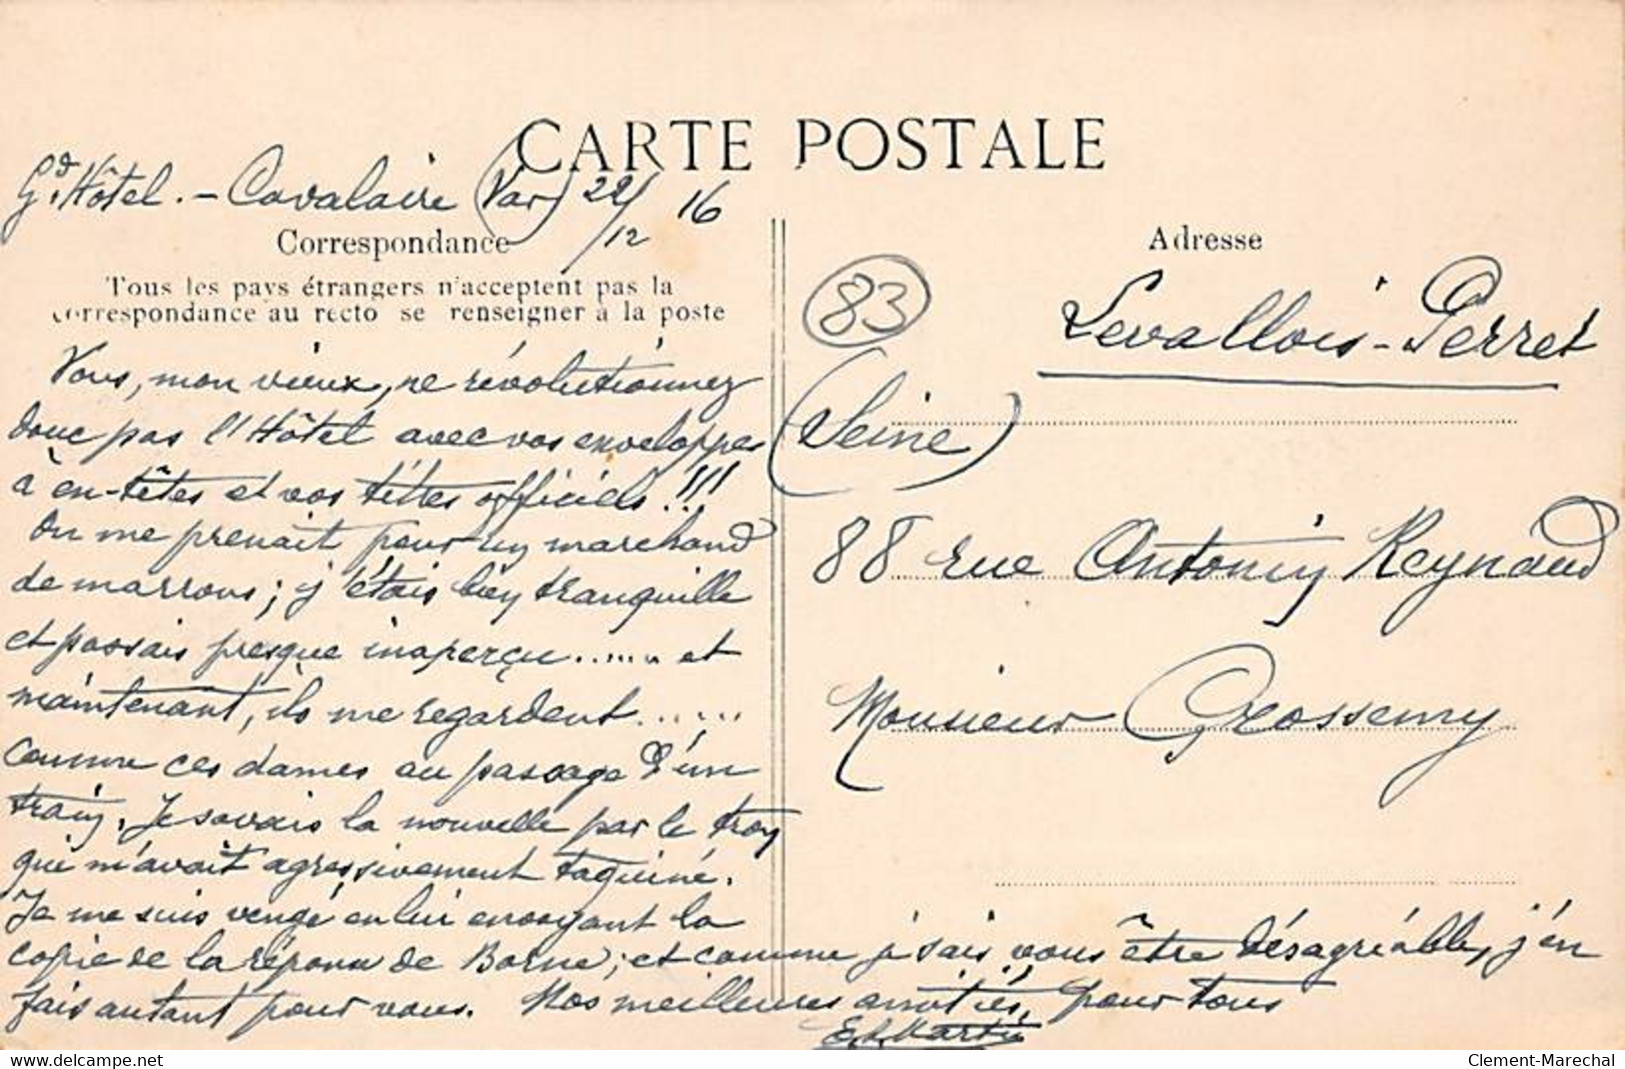 CARTE POSTALE
Gd. Hôtel. - Cavalaire (Var) 22/12 16
Correspondance
Tous les pays étrangers n'acceptent pas la
correspondance au recto se renseigner à la poste
Vous, mon vieux, ne révolutionnez
donc pas l'Hôtel avec vos enveloppes
à en-têtes et vos titres officiels !!!
On me prenait pour un marchand
de marrons ; j'étais bien tranquille
et passais presque inaperçu ...... et
maintenant, ils me regardent ......
comme ces dames au passage d'un
train. Je savais la nouvelle par le
qui m'avait agressivement taquiné.
Je me suis vengé en lui envoyant la
copie de la réponse de Borne ; et comme je sais vous être désagréable, j'en
fais autant pour vous. Nos meilleures amitiés, pour tous
Martin
Adresse
83
Levallois-Perret
(Seine)
88 rue Antonin Reynaud
Monsieur Grossemy
www.delcampe.net
Clement-Marechal